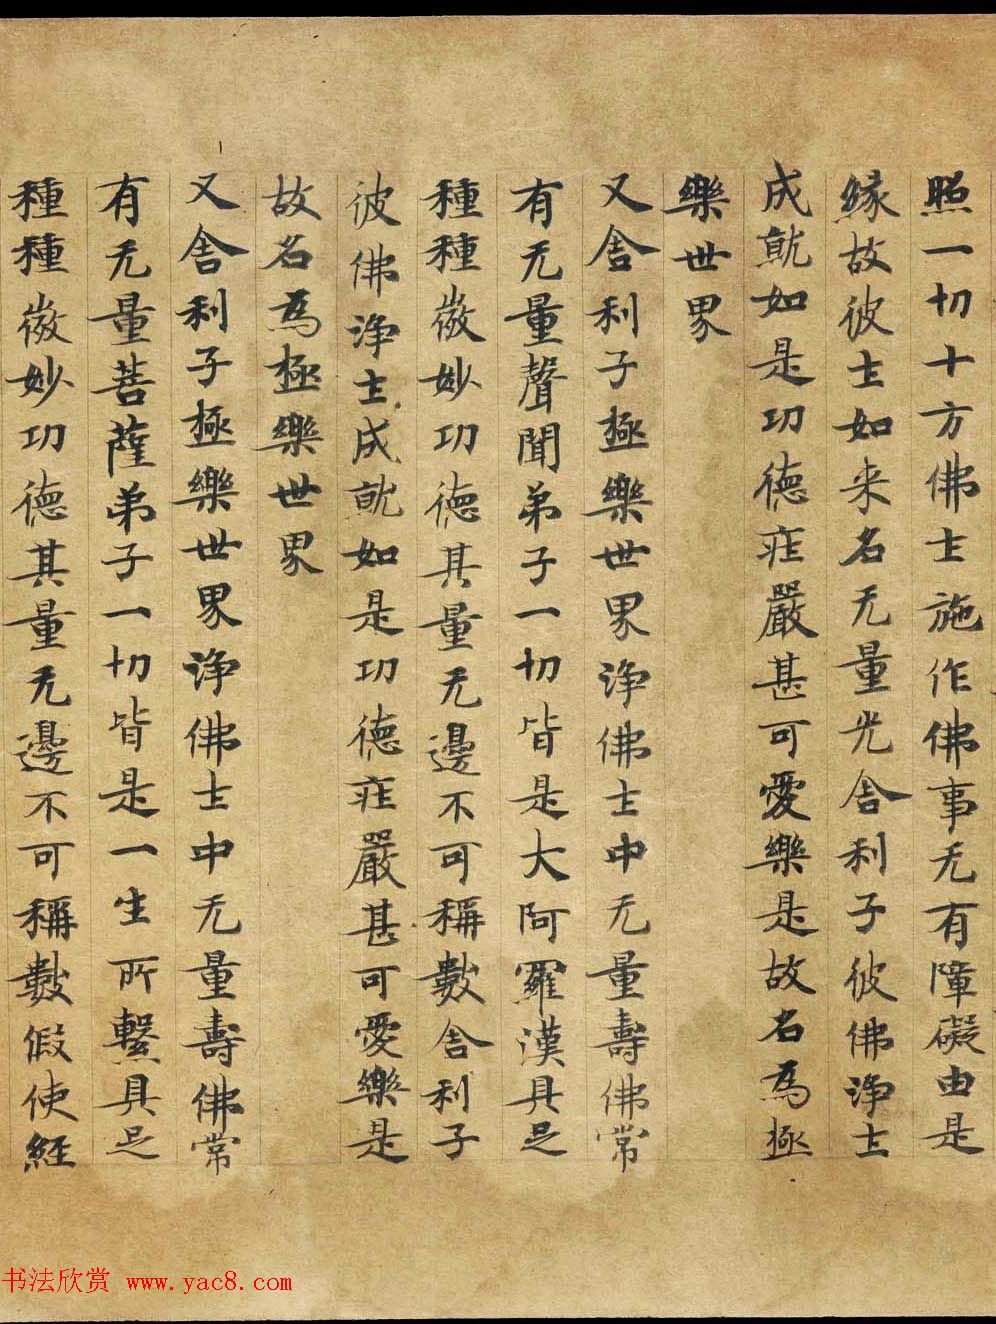 照一切十方佛土施作佛事无有障礙由是
緣故彼土如来名无量光舍利子彼佛淨土
成就如是功德疰嚴甚可愛樂是故名為極
樂世界
又舍利子極樂世界淨佛土中无量壽佛常
有无量聲聞弟子一切皆是大阿羅漢具足
種種微妙功德其量无邊不可稱數舍利子
彼佛淨土成就如是功德疰嚴甚可愛樂是
故名為極樂世界
又舍利子極樂世界淨佛土中无量壽佛常
有无量菩薩弟子一切皆是一生所繫具足
種種微妙功德其量无邊不可稱數假使經
书法欣赏 www.yac8.com